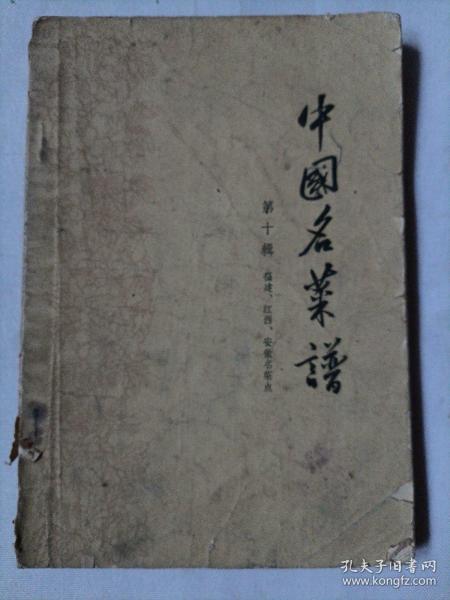 中國名菜譜
第十輯
福建、江西、安徽名菜点
孔夫子旧书网
www.kongfz.com